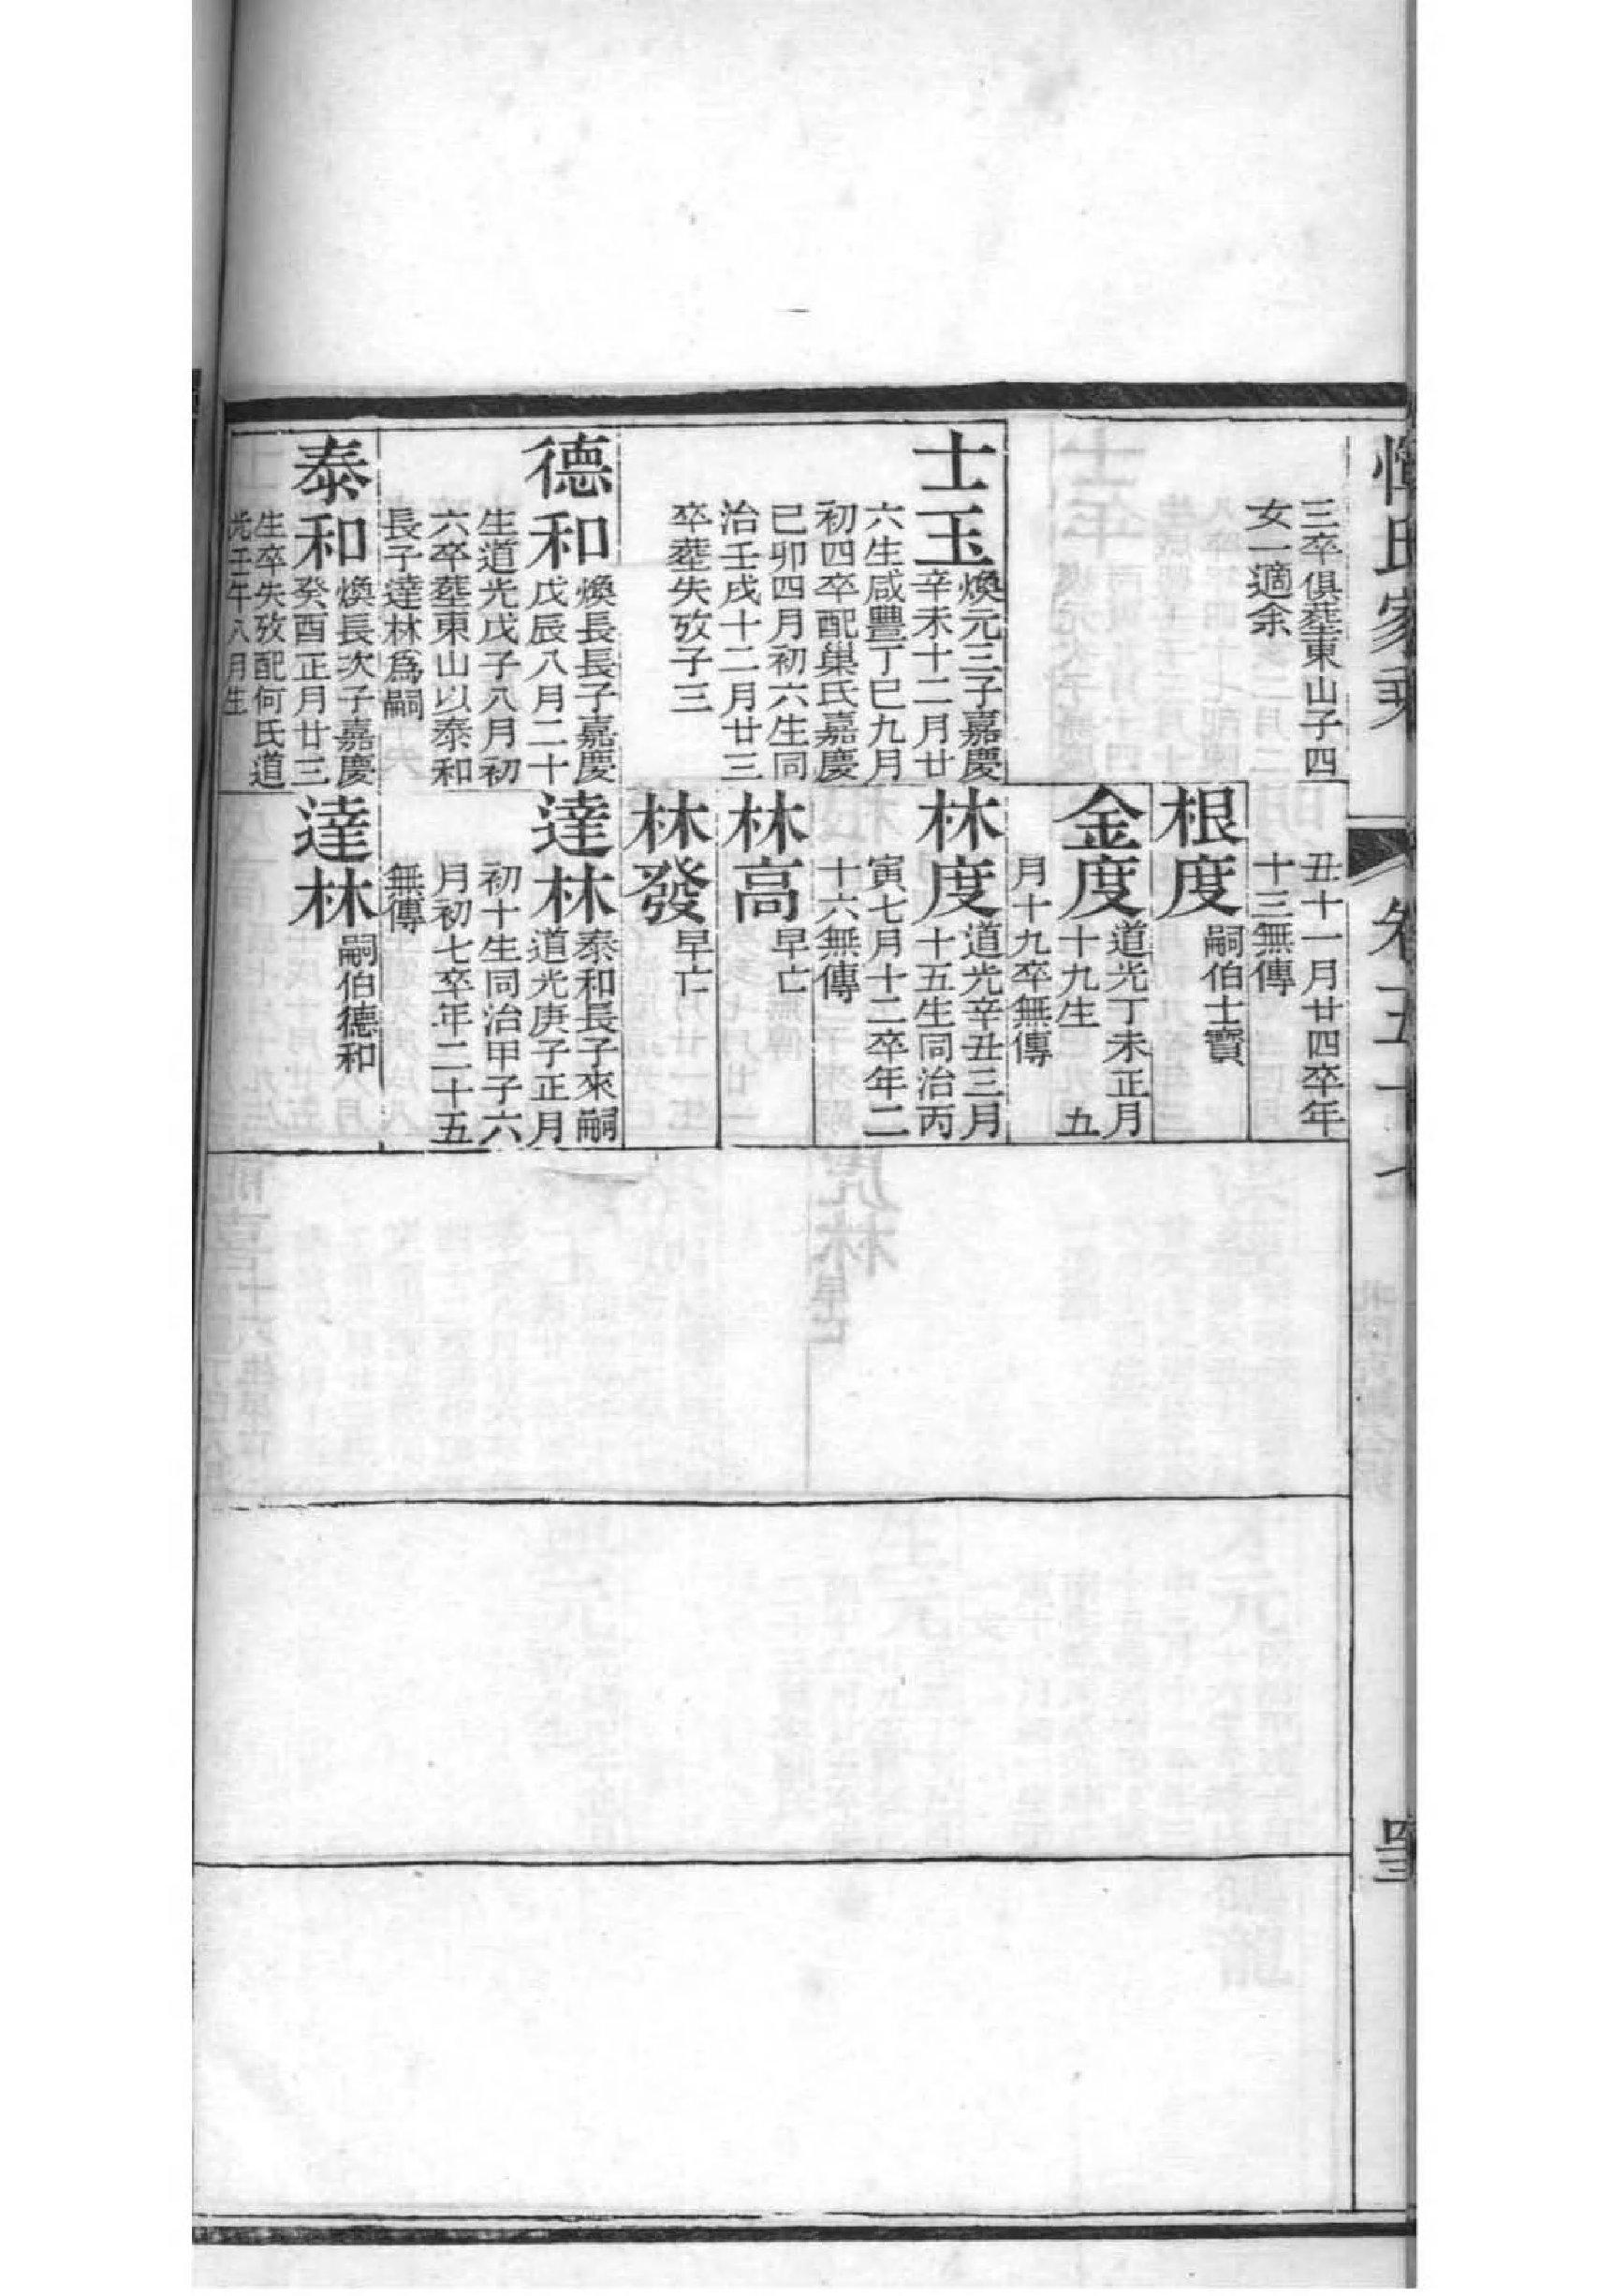 惲氏家乘
卷五十七
三卒俱塟東山子四
女一適余
士玉
煥元三子嘉慶
辛未十二月廿
六生咸豐丁巳九月
初四卒配巢氏嘉慶
己卯四月初六生同
治壬戌十二月廿三
卒塟失攷子三
德和
煥長長子嘉慶
戊辰八月二十
生道光戊子八月初
六卒塟東山以泰和
長子達林爲嗣
泰和
煥長次子嘉慶
癸酉正月廿三
生卒失攷配何氏道
光壬午八月生
丑十一月廿四卒年
十三無傳
根度
嗣伯士寶
金度
道光丁未正月
十九生 九
月十九卒無傳
林度
道光辛丑三月
十五生同治丙
寅七月十二卒年二
十六無傳
林高
早亡
林發
早亡
達林
泰和長子來嗣
道光庚子正月
初十生同治甲子六
月初七卒年二十五
無傳
達林
嗣伯德和